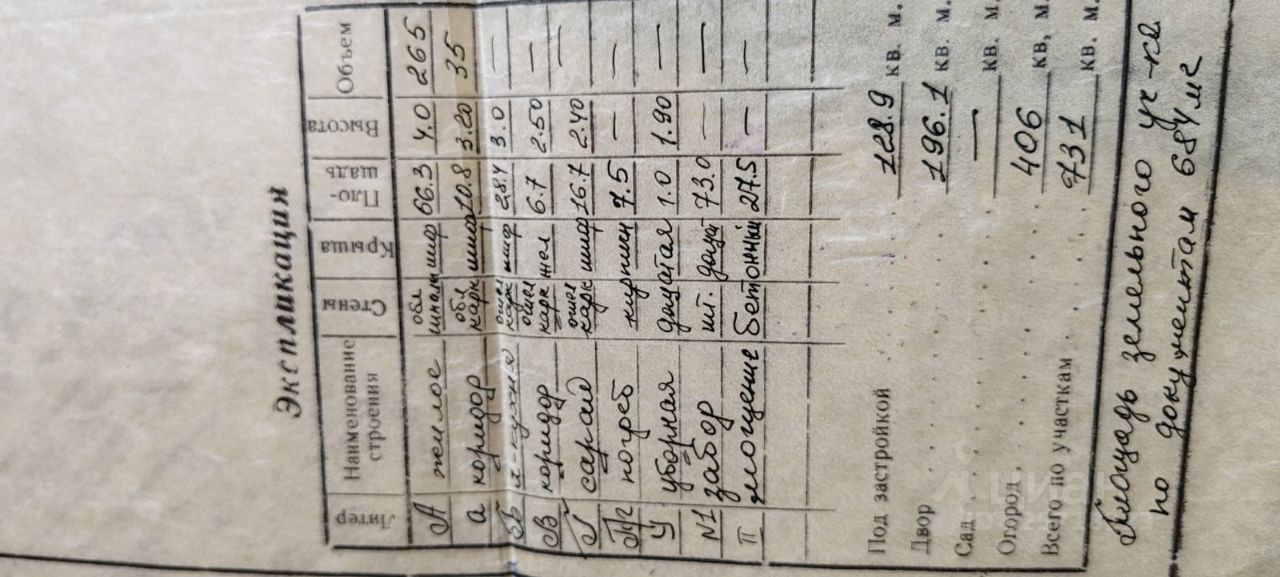 Экспликация
Литер Наименование строения Стены Крыша Площадь Высота Объем
А жилое обл шпальн шиф 66.3 4.0 265
а коридор обл карк шиф 10.8 3.20 35
Б л-кухня ошел карк шиф 28.4 3.0 —
В коридор ошел карк жел 6.7 2.50 —
Г сарай ошел карк шиф 16.7 2.40 —
Пг погреб кирпич 7.5 — —
У уборная дощатая 1.0 1.90 —
N1 забор шт. дощат 73.0 — —
II мощение бетонный 27.5 — —
Под застройкой 128.9 кв. м.
Двор 196.1 кв. м.
Сад — кв. м.
Огород 406 кв, м.
Всего по участкам 731 кв. м.
Площадь земельного уч-ка
по документам 684 м2